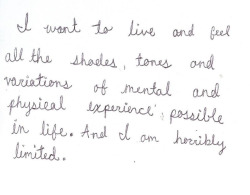 I want to live and feel
all the shades, tones and
variations of mental and
physical experience possible
in life. And I am horribly
limited.